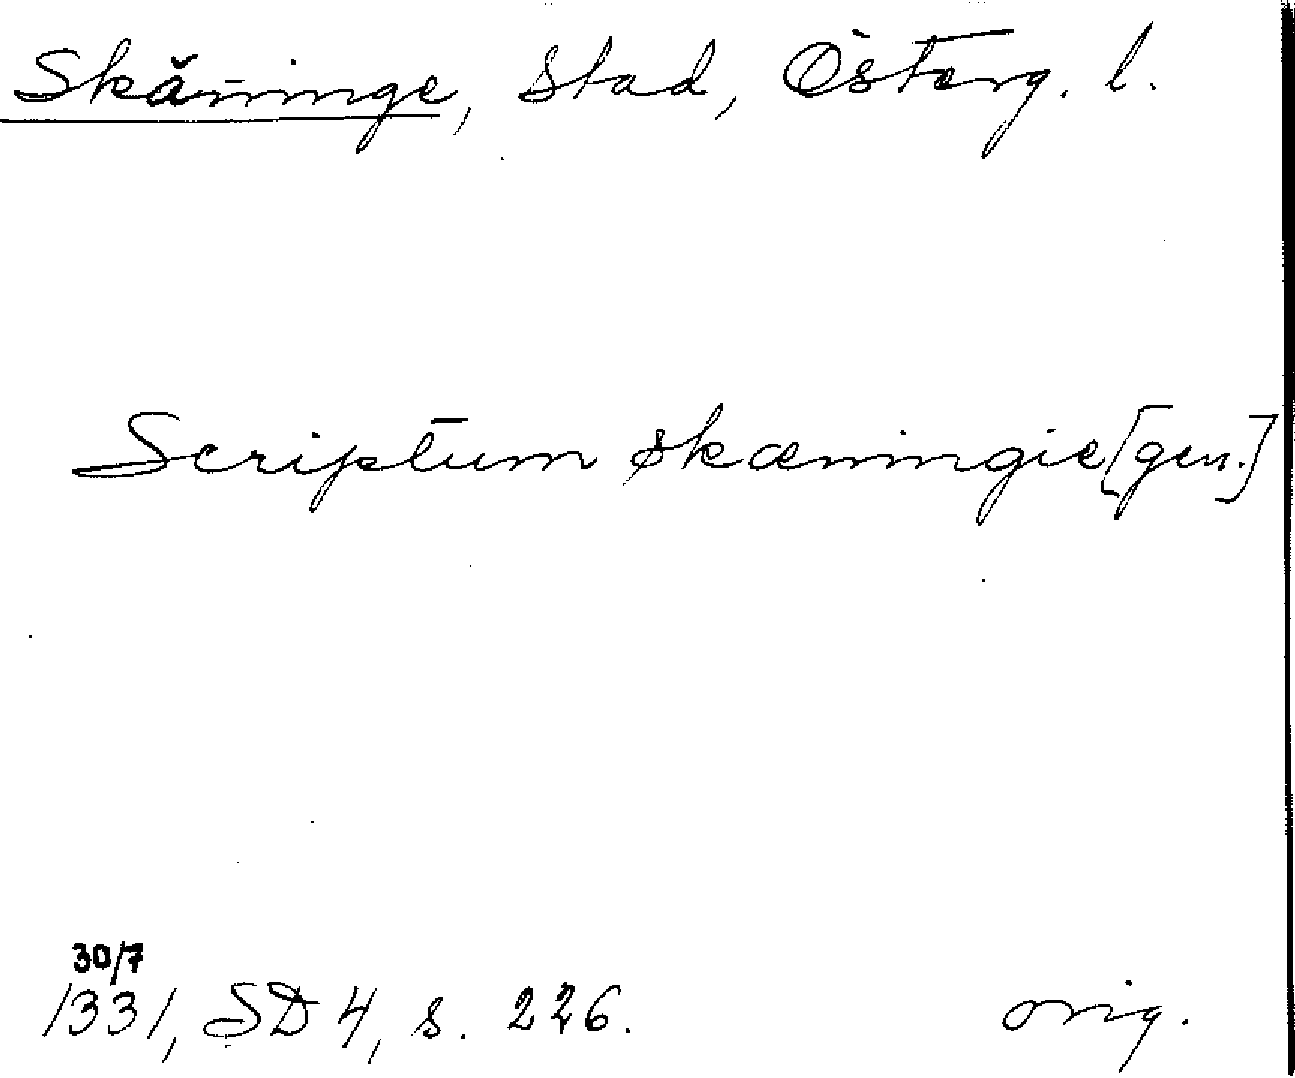 Skänninge, Stad, Österg. l.
Scriptum skæningie [gen.]
30/7
1331, SD 4, s. 226.
orig.